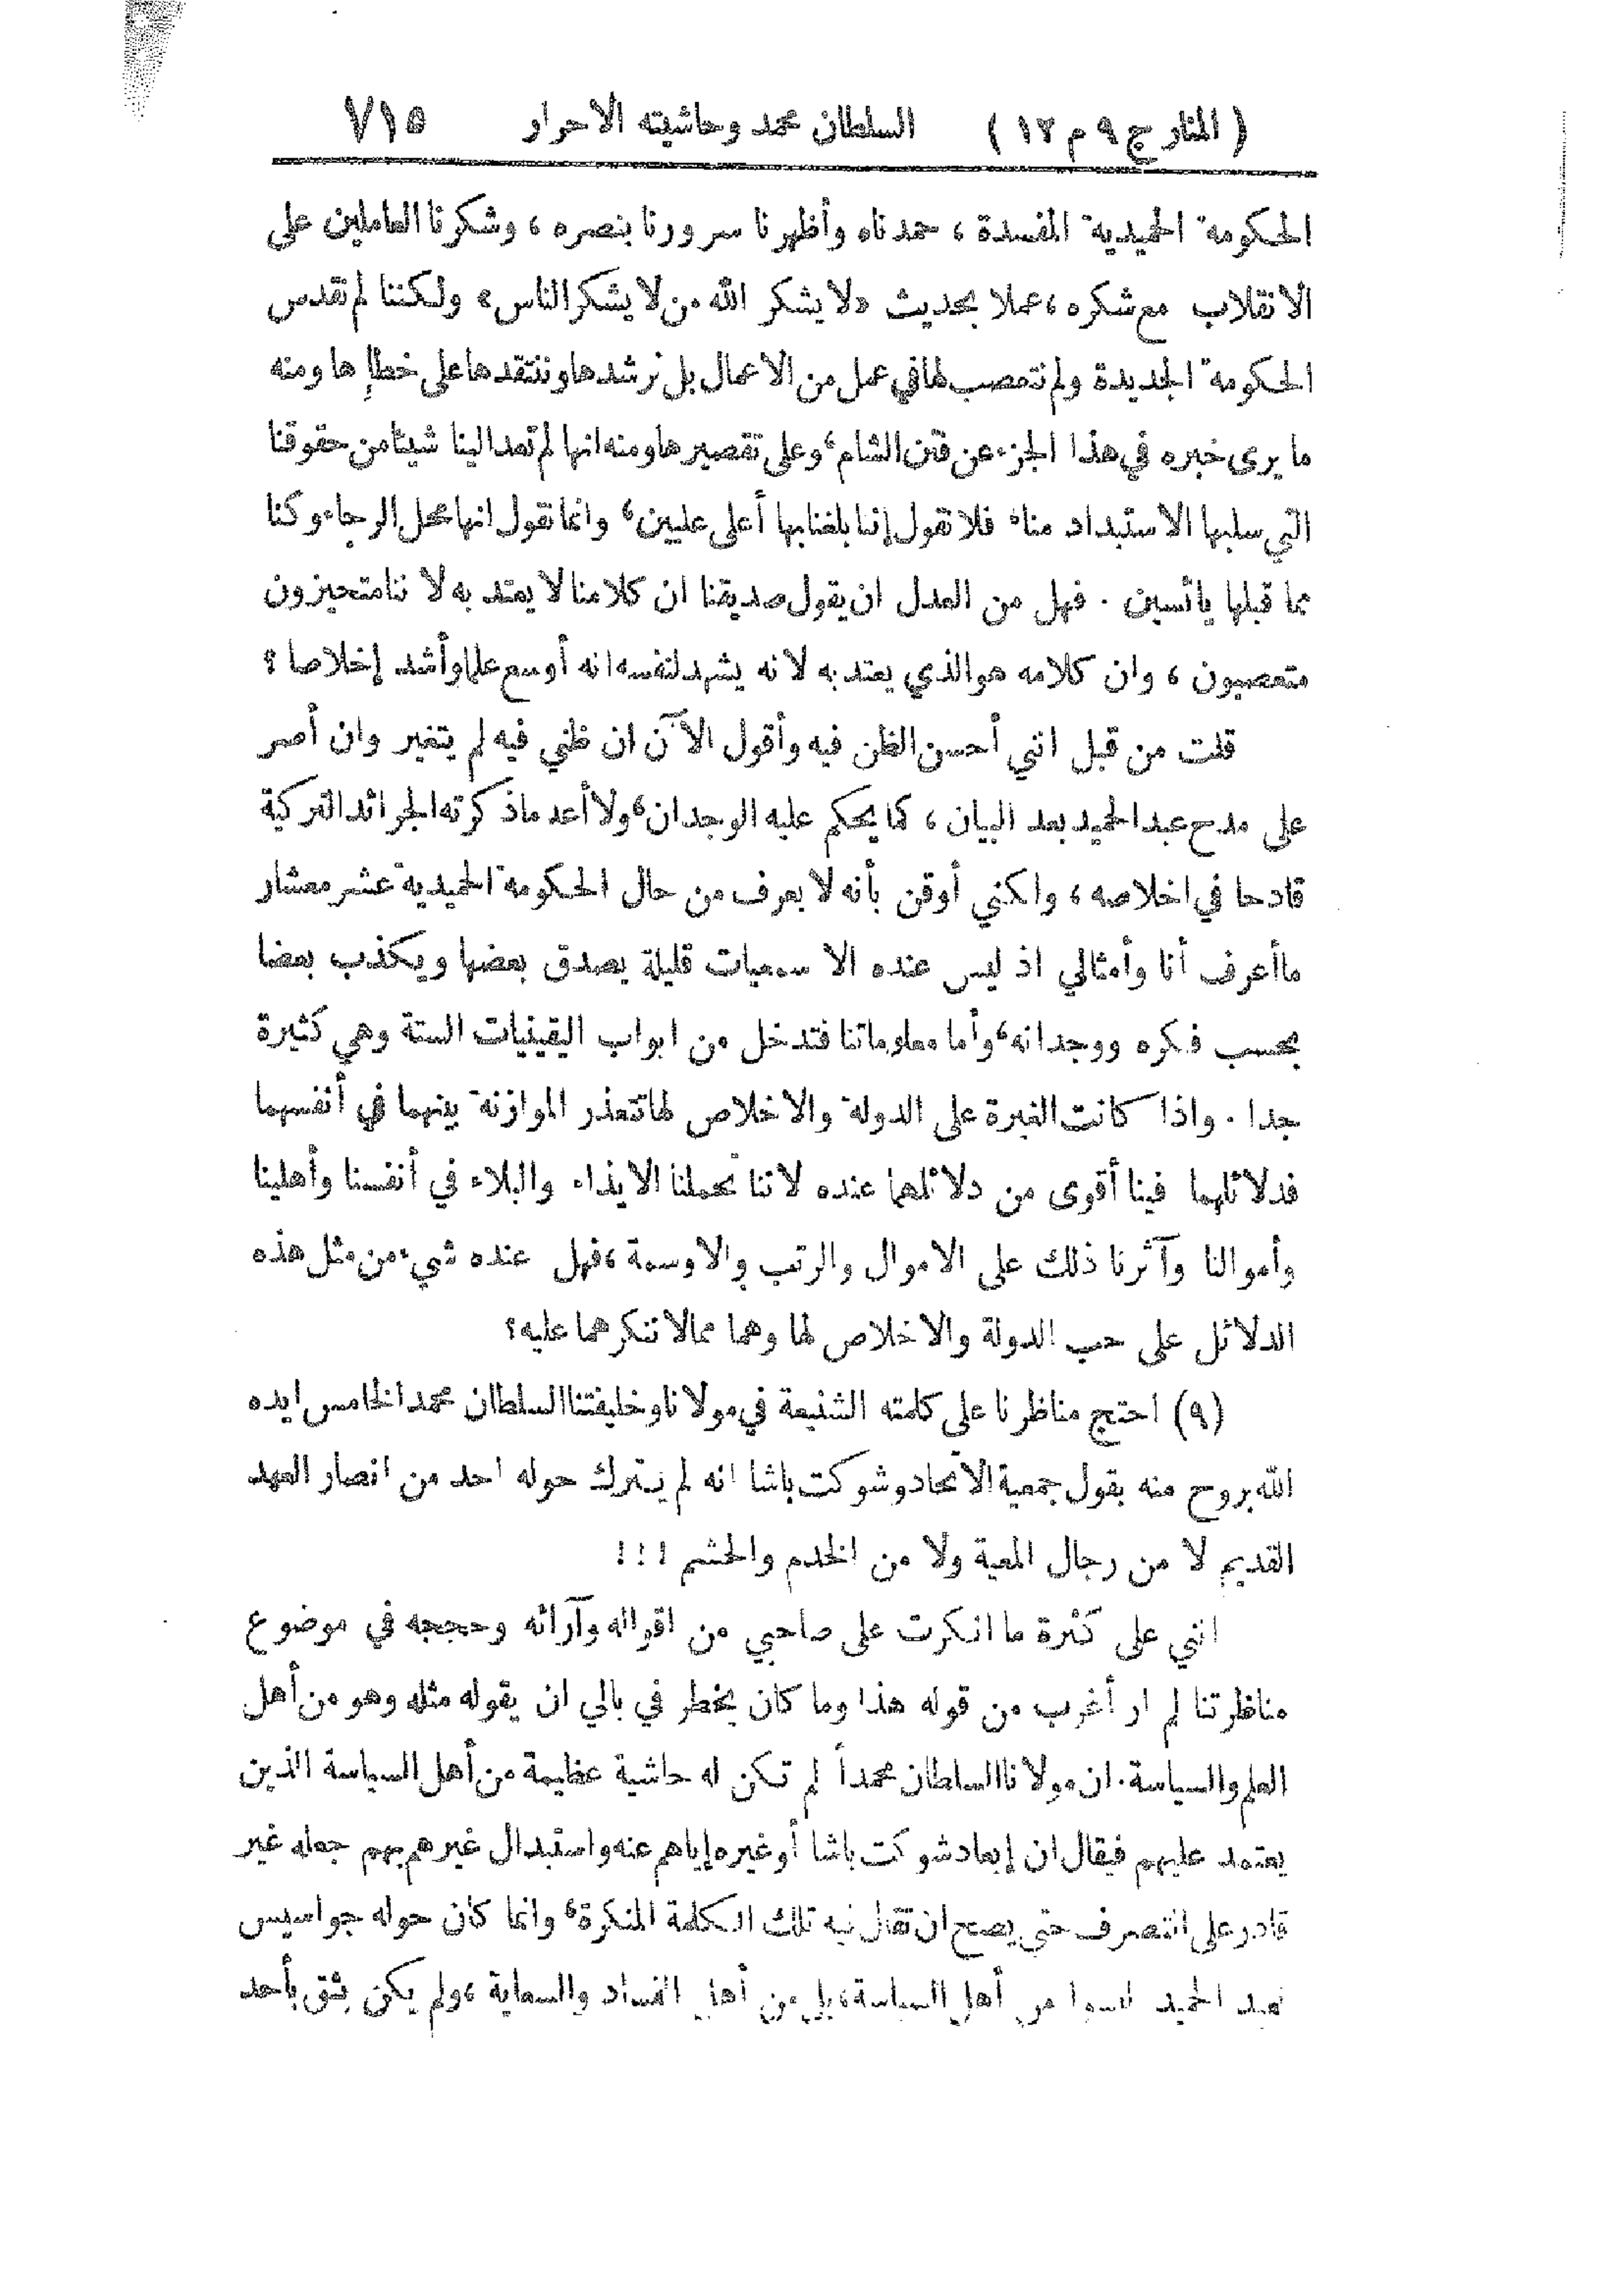 ( المنار ج ٩ م ١٢ ) السلطان محمد وحاشيته الاحرار ٧١٥
الحكومة الحميدية المفسدة ، حمدناه وأظهرنا سرورنا بنصره ، وشكرنا العاملين على
الانقلاب مع شكره ، عملا بحديث « لا يشكر الله من لا يشكر الناس » ولكننا لم نقدس
الحكومة الجديدة ولم نتعصب لها في عمل من الاعمال بل نرشدها وننتقدها على خطإها ومنه
ما يرى خبره في هذا الجزء عن فتن الشام ، وعلى تقصيرها ومنه انها لم تعد الينا شيئا من حقوقنا
التي سلبها الاستبداد منا ، فلا نقول إننا بلغنا بها أعلى عليين ، وانما نقول انها محل الرجاء وكنا
مما قبلها يائسين . فهل من العدل ان يقول صديقنا ان كلامنا لا يعتد به لا ننا متحيزون
متعصبون ، وان كلامه هو الذي يعتد به لانه يشهد لنفسه انه أوسع علما وأشد إخلاصا ؟
قلت من قبل انني أحسن الظن فيه وأقول الآن ان ظني فيه لم يتغير وان أصر
على مدح عبد الحميد بعد البيان ، كما يحكم عليه الوجدان ، ولا أعد ماذكرته الجرائد التركية
قادحا في اخلاصه ، ولكني أوقن بأنه لا يعرف من حال الحكومة الحميدية عشر معشار
ماأعرف أنا وأمثالي اذ ليس عنده الا سمعيات قليلة يصدق بعضها ويكذب بعضا
بحسب فكره ووجدانه ، وأما معلوماتنا فتدخل من ابواب اليقينيات الستة وهي كثيرة
جدا . واذا كانت الغيرة على الدولة والاخلاص لها تتعذر الموازنة بينهما في أنفسهما
فدلائلهما فينا أقوى من دلائلهما عنده لاننا تحملنا الايذاء والبلاء في أنفسنا وأهلينا
وأموالنا وآثرنا ذلك على الاموال والرتب والاوسمة ، فهل عنده شيء من مثل هذه
الدلائل على حب الدولة والاخلاص لها وهما ممالا ننكرهما عليه ؟
(٩) احتج مناظرنا على كلمته الشنيعة في مولانا وخليفتنا السلطان محمد الخامس ايده
الله بروح منه بقول جمعية الاتحاد وشوكت باشا انه لم يترك حوله احد من انصار العهد
القديم لا من رجال المعية ولا من الخدم والحشم ! ! !
انني على كثرة ما انكرت على صاحبي من اقواله وآرائه وحججه في موضوع
مناظرتنا لم ار أغرب من قوله هذا وما كان يخطر في بالي ان يقوله مثله وهو من أهل
العلم والسياسة . ان مولانا السلطان محمداً لم تكن له حاشية عظيمة من أهل السياسة الذين
يعتمد عليهم فيقال ان إبعاد شوكت باشا أو غيره إياهم عنه واستبدال غيرهم بهم جعله غير
قادر على التصرف حتى يصح ان تقال فيه تلك الكلمة المنكرة ، وانما كان حوله جواسيس
لعبد الحميد ليسوا من أهل السياسة ، بل من أهل الفساد والسعاية ، ولم يكن يثق بأحد